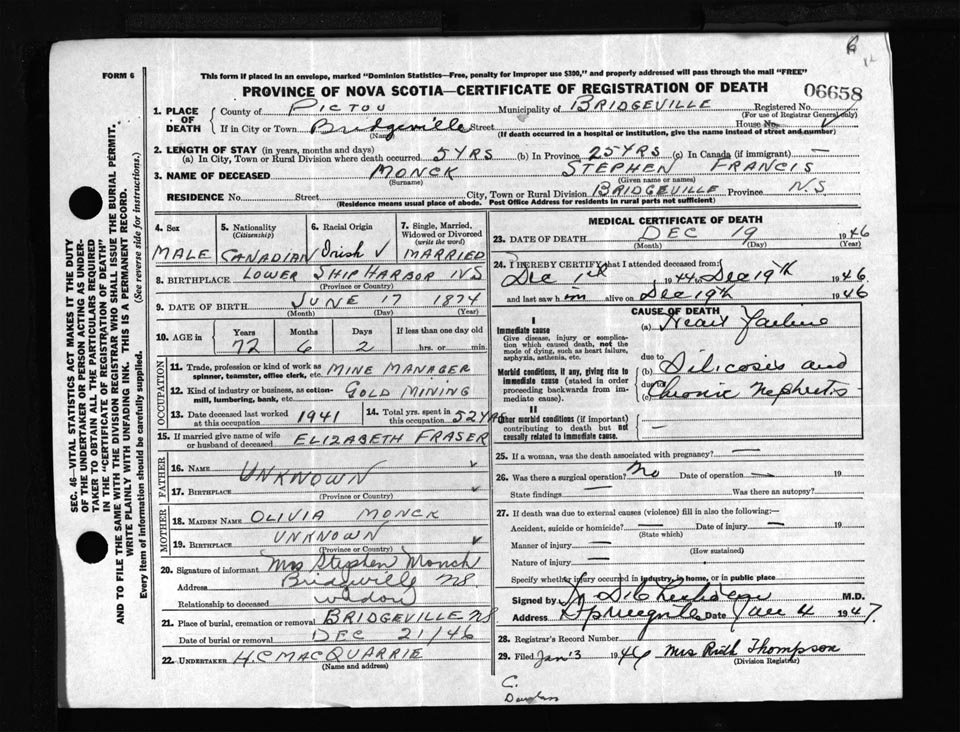 FORM 6
This form if placed in an envelope, marked "Dominion Statistics—Free, penalty for improper use $300," and properly addressed will pass through the mail "FREE"
PROVINCE OF NOVA SCOTIA—CERTIFICATE OF REGISTRATION OF DEATH
06658
1. PLACE OF DEATH
County of PICTOU Municipality of BRIDGEVILLE Registered No.
(For use of Registrar General only)
If in City or Town Bridgeville Street House No.
(Name) (If death occurred in a hospital or institution, give the name instead of street and number)
2. LENGTH OF STAY (in years, months and days)
(a) In City, Town or Rural Division where death occurred 5 YRS (b) In Province 25 YRS (c) In Canada (if immigrant) —
3. NAME OF DECEASED MONCK STEPHEN FRANCIS
(Surname) (Given name or names)
RESIDENCE No. Street City, Town or Rural Division BRIDGEVILLE Province N.S
(Residence means usual place of abode. Post Office Address for residents in rural parts not sufficient)
4. Sex
MALE
5. Nationality
(Citizenship)
CANADIAN
6. Racial Origin
Irish
7. Single, Married, Widowed or Divorced
(write the word)
MARRIED
8. BIRTHPLACE LOWER SHIP HARBOR NS
(Province or Country)
9. DATE OF BIRTH JUNE 17 1874
(Month) (Day) (Year)
10. AGE in
Years Months Days If less than one day old
72 6 2 hrs. or min.
OCCUPATION
11. Trade, profession or kind of work as spinner, teamster, office clerk, etc. MINE MANAGER
12. Kind of industry or business, as cotton-mill, lumbering, bank, etc. GOLD MINING
13. Date deceased last worked at this occupation 1941
14. Total yrs. spent in this occupation 52 YRS
15. If married give name of wife or husband of deceased ELIZABETH FRASER
FATHER
16. NAME
UNKNOWN
17. BIRTHPLACE
(Province or Country)
MOTHER
18. MAIDEN NAME OLIVIA MONCK
19. BIRTHPLACE UNKNOWN
(Province or Country)
20. Signature of informant Mrs Stephen Monck
Address Bridgeville NS.
Relationship to deceased widow
21. Place of burial, cremation or removal BRIDGEVILLE NS
Date of burial or removal DEC 21/46
22. UNDERTAKER H.C MACQUARRIE
(Name and address)
MEDICAL CERTIFICATE OF DEATH
23. DATE OF DEATH DEC 19 1946
(Month) (Day) (Year)
24. I HEREBY CERTIFY that I attended deceased from:
Dec 1st 1944 to Dec 19th 1946
and last saw him alive on Dec 19th 1946
CAUSE OF DEATH
I
Immediate cause
Give disease, injury or complication which caused death, not the mode of dying, such as heart failure, asphyxia, asthenia, etc.
(a) Heart Failure
due to
Morbid conditions, if any, giving rise to immediate cause (stated in order proceeding backwards from immediate cause).
(b) Silicosis and
due to
(c) Chronic Nephritis
II
Other morbid conditions (if important) contributing to death but not causally related to immediate cause.
—
25. If a woman, was the death associated with pregnancy? —
26. Was there a surgical operation? No Date of operation — 19
State findings — Was there an autopsy?
27. If death was due to external causes (violence) fill in also the following:—
Accident, suicide or homicide? — Date of injury — 19
(State which)
Manner of injury —
(How sustained)
Nature of injury —
Specify whether injury occurred in industry, in home, or in public place
Signed by M.D.
Address Date Jan 4 1947.
28. Registrar's Record Number
29. Filed Jan 3 1946 Mrs Ruth Thompson
(Division Registrar)
C.
SEC. 46—VITAL STATISTICS ACT MAKES IT THE DUTY
OF THE UNDERTAKER OR PERSON ACTING AS UNDERTAKER TO OBTAIN ALL THE PARTICULARS REQUIRED
IN THE "CERTIFICATE OF REGISTRATION OF DEATH"
AND TO FILE THE SAME WITH THE DIVISION REGISTRAR WHO SHALL ISSUE THE BURIAL PERMIT.
WRITE PLAINLY WITH UNFADING INK. THIS IS A PERMANENT RECORD.
Every item of information should be carefully supplied. (See reverse side for instructions.)